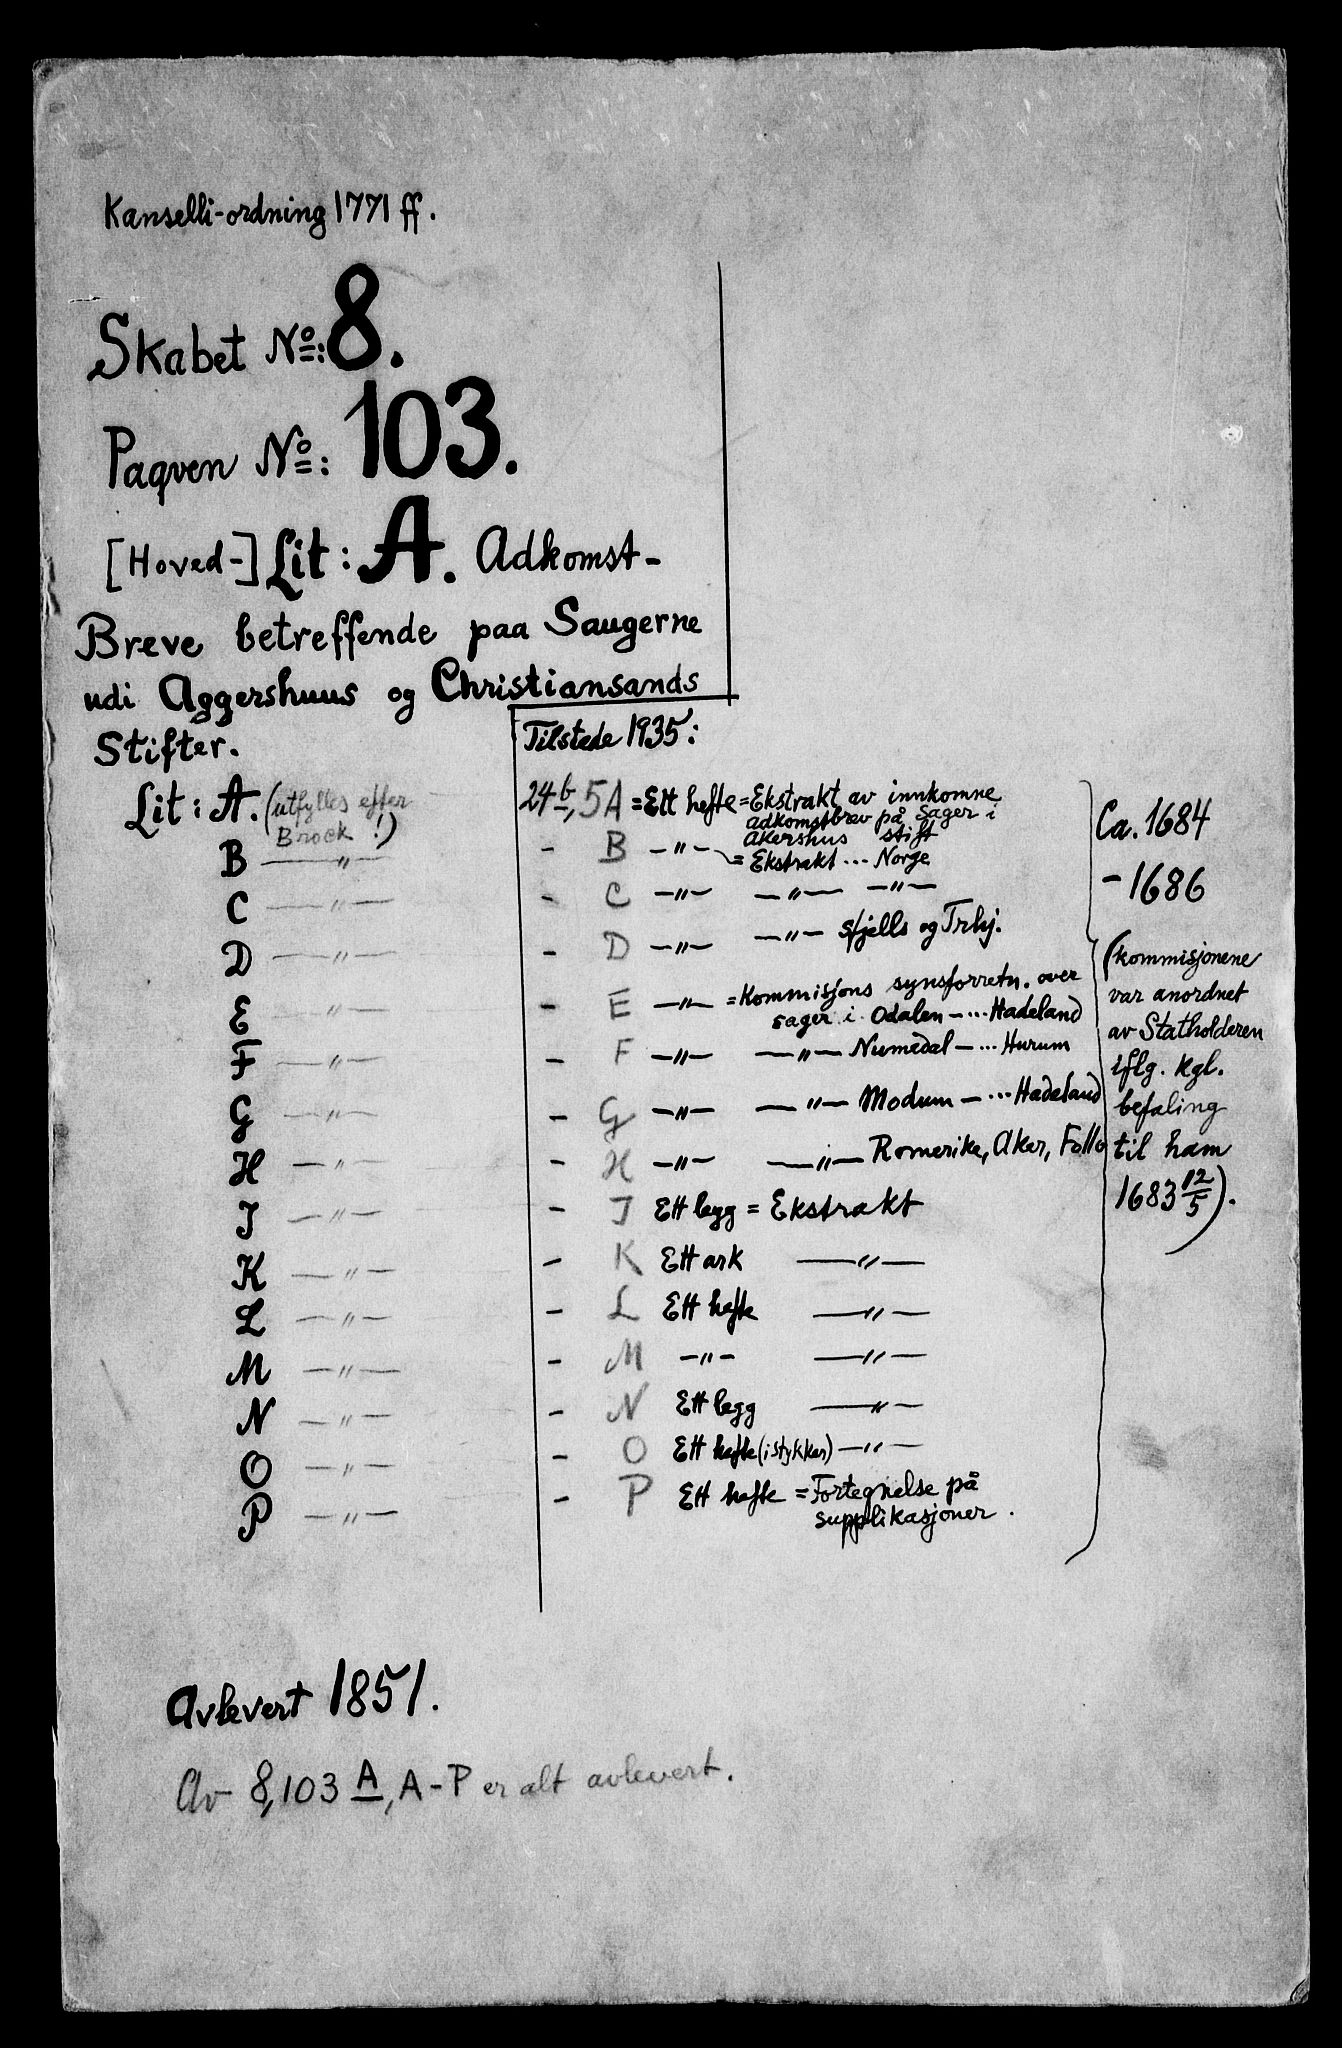 Kanselli-ordning 1771 ff.
Skabet No: 8.
Paqven No: 103.
[Hoved-] Lit: A. Adkomst-
Breve betreffende paa Saugerne
udi Aggershuus og Christiansands
Stifter.
Lit: A. (utfylles efter
Brock!)
B — " —
C — " —
D — " —
E — " —
F — " —
G — " —
H — " —
I — " —
K — " —
L — " —
M — " —
N — " —
O — " —
P — " —
Tilstede 1935:
24 b, 5A = Ett hefte = Ekstrakt av innkomne
adkomstbrev på sager i
Akershus stift
- B — " — = Ekstrakt ... Norge
- C — " — — " — — " —
- D — " — — " — sfjells og Trhj.
- E — " — = Kommisjons synsforretn. over
sager i Odalen — ... Hadeland
- F — " — — " — Numedal — ... Hurum
- G — " — — " — Modum — ... Hadeland
- H — " — — " — Romerike, Aker, Follo
- I Ett legg = Ekstrakt
- K Ett ark — " —
- L Ett hefte — " —
- M — " — — " —
- N Ett legg — " —
- O Ett hefte (i stykker) — " —
- P Ett hefte = Fortegnelse på
supplikasjoner.
Ca. 1684
- 1686
(kommisjonene
var anordnet
av Statholderen
iflg. kgl.
befaling
til ham
1683 12/5).
Avlevert 1851.
Av 8,103 A, A-P er alt avlevert.